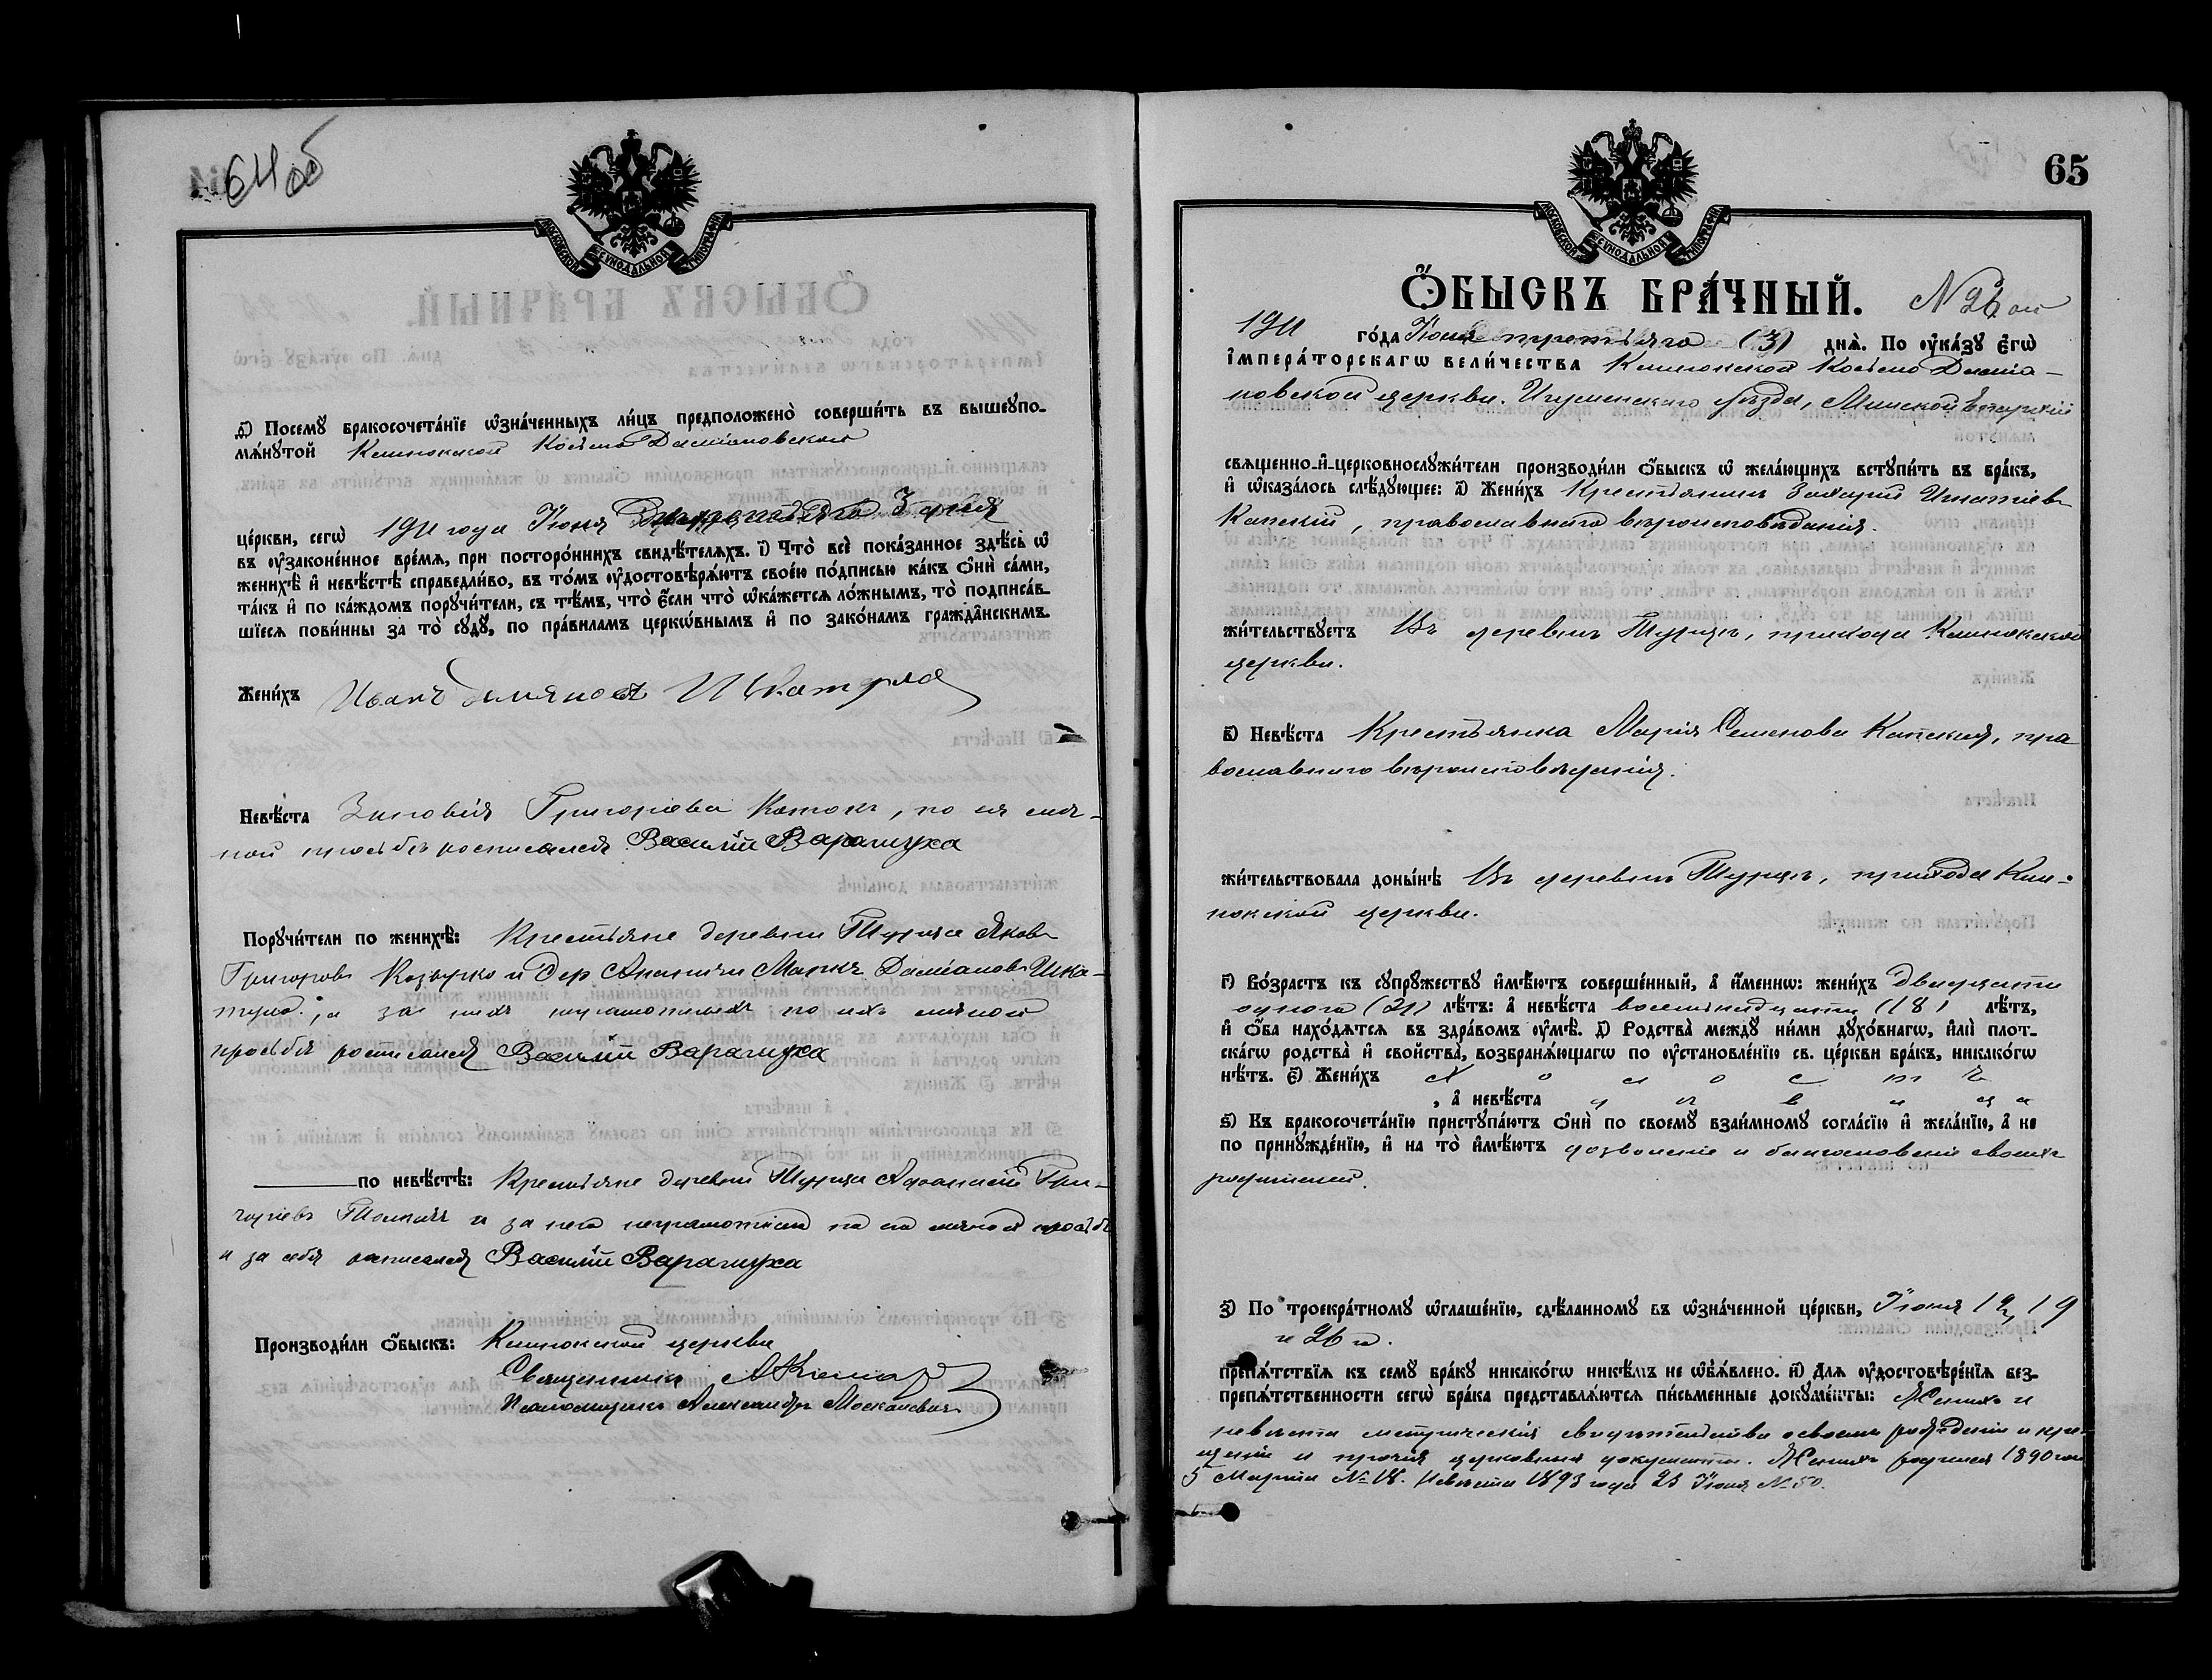 64 об
МОСКОВСКОЙ СѴНОДАЛЬНОЙ ТИПОГРАФІИ
д҃) Посемꙋ бракосочета́нїе ѡ҆зна́ченныхъ ли́цъ предположено̀ соверши́ть въ вышеꙋпо-
мѧ́нꙋтой Клинокской Косьмо Даміановской
це́ркви, сегѡ̀ 1911 года Іюня 3 дня
въ ᲂу҆зако́ненное вре́мѧ, при посторо́ннихъ свидѣ́телѧхъ. і҃) Что̀ всѐ пока́занное здѣ́сь ѡ҆
женихѣ̀ и҆ невѣ́стѣ справедли́во, въ то́мъ ᲂу҆достовѣрѧ́ютъ свое́ю по́дписью ка́къ ѻ҆нѝ са́ми,
та́къ и҆ по ка́ждомъ порꙋчи́тели, съ тѣ́мъ, что̀ є҆́сли что̀ ѡ҆ка́жетсѧ ло́жнымъ, то̀ подписа́в-
шїесѧ пови́нны за то̀ сꙋдꙋ̀, по пра́виламъ церкѡ́внымъ и҆ по зако́намъ гражда́нскимъ.
Жени́хъ Иванъ Шкатула
Невѣ́ста Зиновія Григоріева Коток, по ея лич-
ной просьбѣ росписался Василій Варачуха
Порꙋчи́тели по женихѣ̀: Крестьяне деревни Турца Яковъ
Григоровъ Козурко и дер Ананичи Маркъ Даміановъ Шка-
тула; а за нихъ неграмотныхъ по ихъ личной
просьбѣ росписался Василій Варачуха
по невѣ́стѣ: Крестьяне деревни Турца Афанасій Гри-
горіевъ и за него неграмотнаго по его личной просьбѣ
и за себя росписался Василій Варачуха
Производи́ли ѻ҆́быскъ: Клинокской церкви
Священникъ
Псаломщикъ Александръ Москалевичъ
65
МОСКОВСКОЙ СѴНОДАЛЬНОЙ ТИПОГРАФІИ
Ѻ҆́БЫСКЪ БРА́ЧНЫЙ. N 26 ой
1911 го́да Іюня третьяго (3) днѧ̀. По ᲂу҆ка́зꙋ є҆гѡ̀
і҆мпера́торскагѡ вели́чества Клинокской Косьмо Даміа-
новской церкви. Игуменскаго уѣзда, Минской Епархіи
свѧщенно-и҆-церковнослꙋжи́тели производи́ли ѻ҆́быскъ ѡ҆ жела́ющихъ встꙋпи́ть въ бра́къ,
и҆ ѡ҆каза́лось слѣ́дꙋющее: а҃) Жени́хъ Крестьянинъ Захарій Игнатіевъ
Капскій, православнаго вѣроисповѣданія.
жи́тельствꙋетъ Въ деревнѣ Турцѣ, прихода Клинокской
церкви.
в҃) Невѣ́ста Крестьянка Марія Семенова Капская, пра
вославнаго вѣроисповѣданія.
жи́тельствовала доны́нѣ Въ деревнѣ Турцѣ, прихода Кли-
нокской церкви.
г҃) Во́зрастъ къ сꙋпрꙋ́жествꙋ и҆мѣ́ютъ соверше́нный, а҆ и҆́менно: жени́хъ двадцати
одного (21) лѣ́тъ: а҆ невѣ́ста восемнадцати (18) лѣ́тъ,
и҆ ѻ҆́ба нахо́дѧтсѧ въ здра́вомъ ᲂу҆мѣ̀. д҃) Родства̀ междꙋ̀ ни́ми дꙋхо́внагѡ, и҆лѝ плот-
ска́гѡ родства̀ и҆ свойства̀, возбранѧ́ющагѡ по ᲂу҆становле́нїю св. це́ркви бра́къ, никако́гѡ
нѣ́тъ. є҃) Жени́хъ х о л о с т ъ
, а҆ невѣ́ста д ѣ в и ц а
ѕ҃) Къ бракосочета́нїю пристꙋпа́ютъ ѻ҆нѝ по своемꙋ̀ взаи́мномꙋ согла́сїю и҆ жела́нїю, а҆ не
по принꙋжде́нїю, и҆ на то̀ и҆мѣ́ютъ дозволеніе и благословеніе своихъ
родителей.
з҃) По троекра́тномꙋ ѡ҆глаше́нїю, сдѣ́ланномꙋ въ ѡ҆зна́ченной це́ркви, Іюня 12, 19
и 26 го.
препѧ́тствїѧ къ семꙋ̀ бра́кꙋ никако́гѡ никѣ́мъ не ѡ҆бъѧ́влено. и҃) Длѧ ᲂу҆достовѣре́нїѧ без-
препѧ́тственности сегѡ̀ бра́ка представлѧ́ютсѧ пи́сьменные докꙋме́нты: Женихъ и
невѣста метрическія свидѣтельства о своемъ рожденіи и кре-
щеніи и прочія церковные документы. Женихъ родился 1890 года
5 Марта № 18. Невѣста 1893 года 23 Іюня № 50.